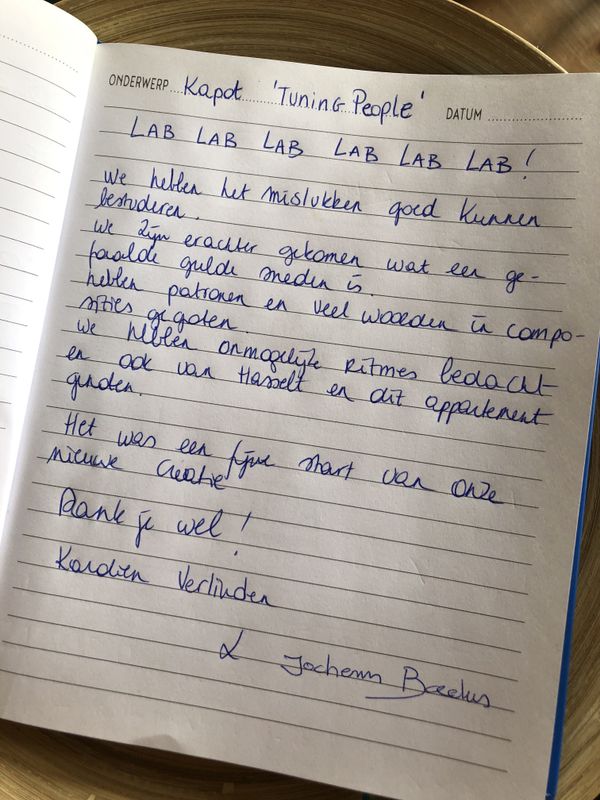 ONDERWERP Kapot 'Tuning People' DATUM
LAB LAB LAB LAB LAB LAB!
We hebben het mislukken goed kunnen
bestuderen.
We zijn erachter gekomen wat een ge-
faalde gulde sneden is.
hebben patronen en veel woorden in compo-
sities gegoten.
We hebben onmogelijke ritmes bedacht
en ook van Hasselt en dit appartement
genoten.
Het was een fijne start van onze
nieuwe creatie
Dank je wel!
Karolien Verlinden
& Jochem Baelus